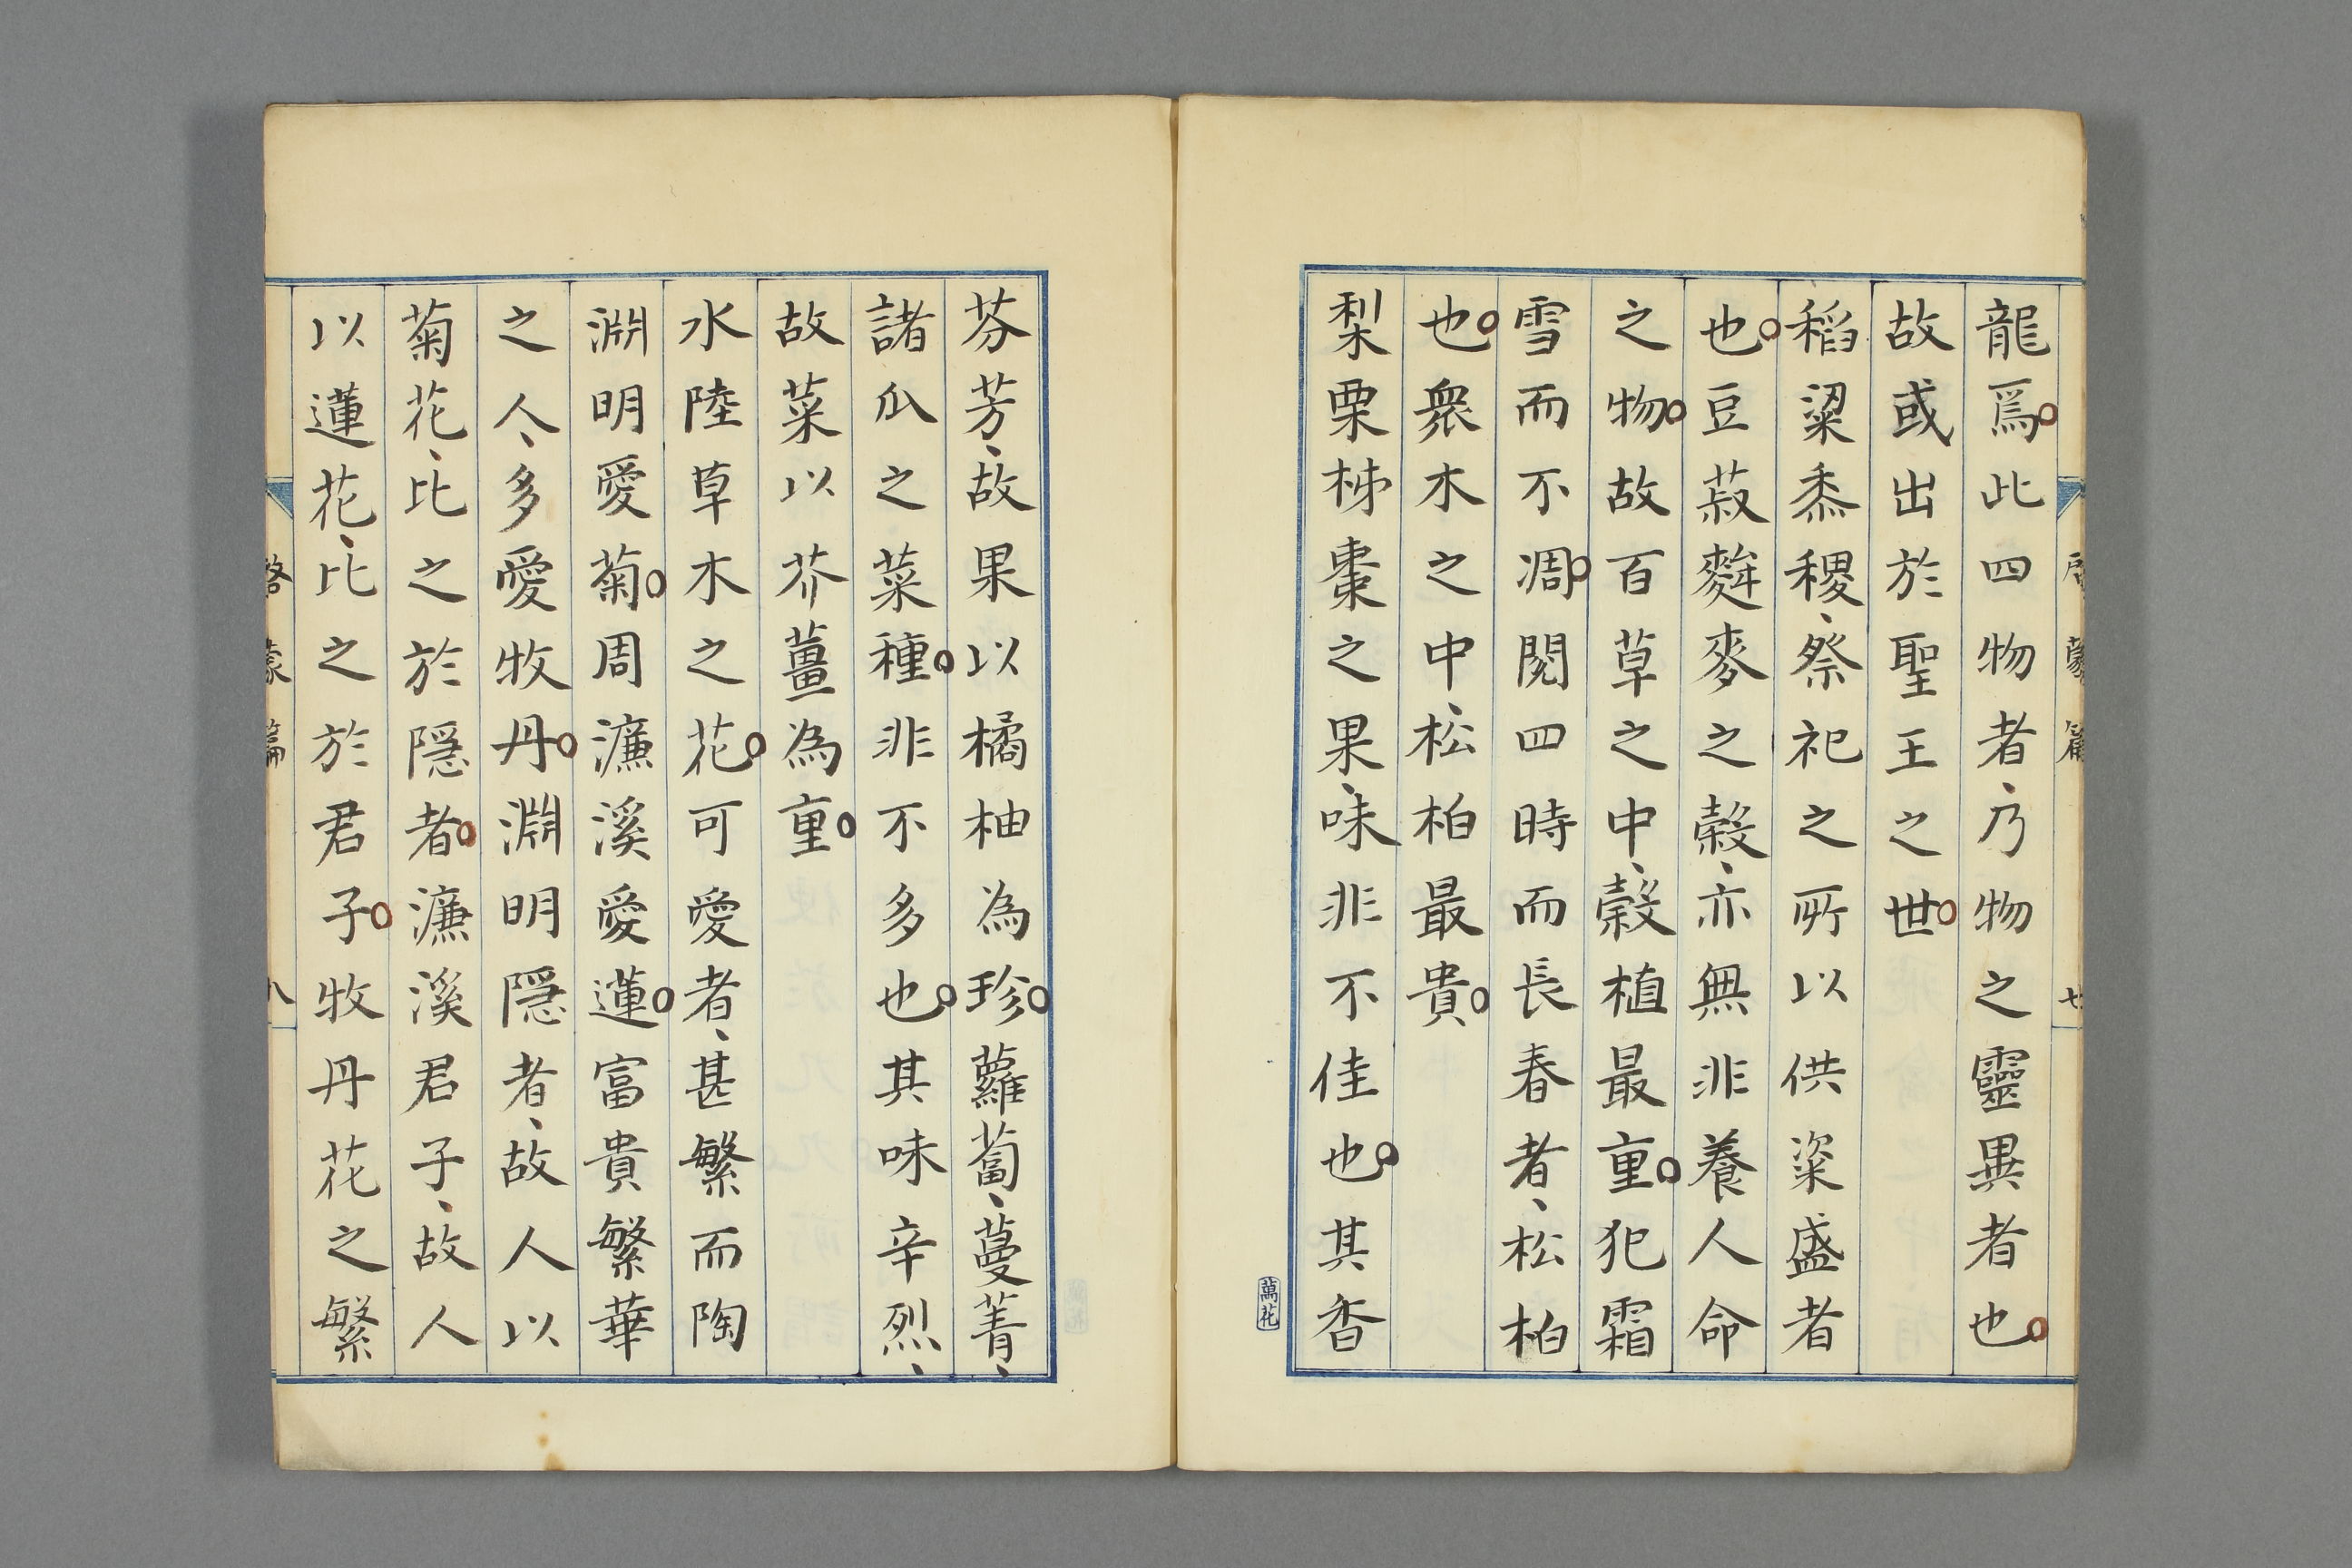 龍焉。此四物者、乃物之靈異者也。
故或出於聖王之世。
稻粱黍稷、祭祀之所以供粢盛者
也。豆菽麰麥之穀、亦無非養人命
之物。故百草之中、穀植最重。犯霜
雪而不凋。閱四時而長春者、松柏
也。衆木之中、松柏最貴。
梨栗柹棗之果、味非不佳也。其香
萬花
芬芳、故果以橘柚為珍。蘿蔔、蔓菁、
諸瓜之菜種。非不多也。其味辛烈、
故菜以芥薑為重。
水陸草木之花。可愛者、甚繁而陶
淵明愛菊。周濂溪愛蓮。富貴繁華
之人、多愛牧丹。淵明隱者、故人以
菊花、比之於隱者。濂溪君子、故人
以蓮花、比之於君子。牧丹花之繁
啓蒙篇
八